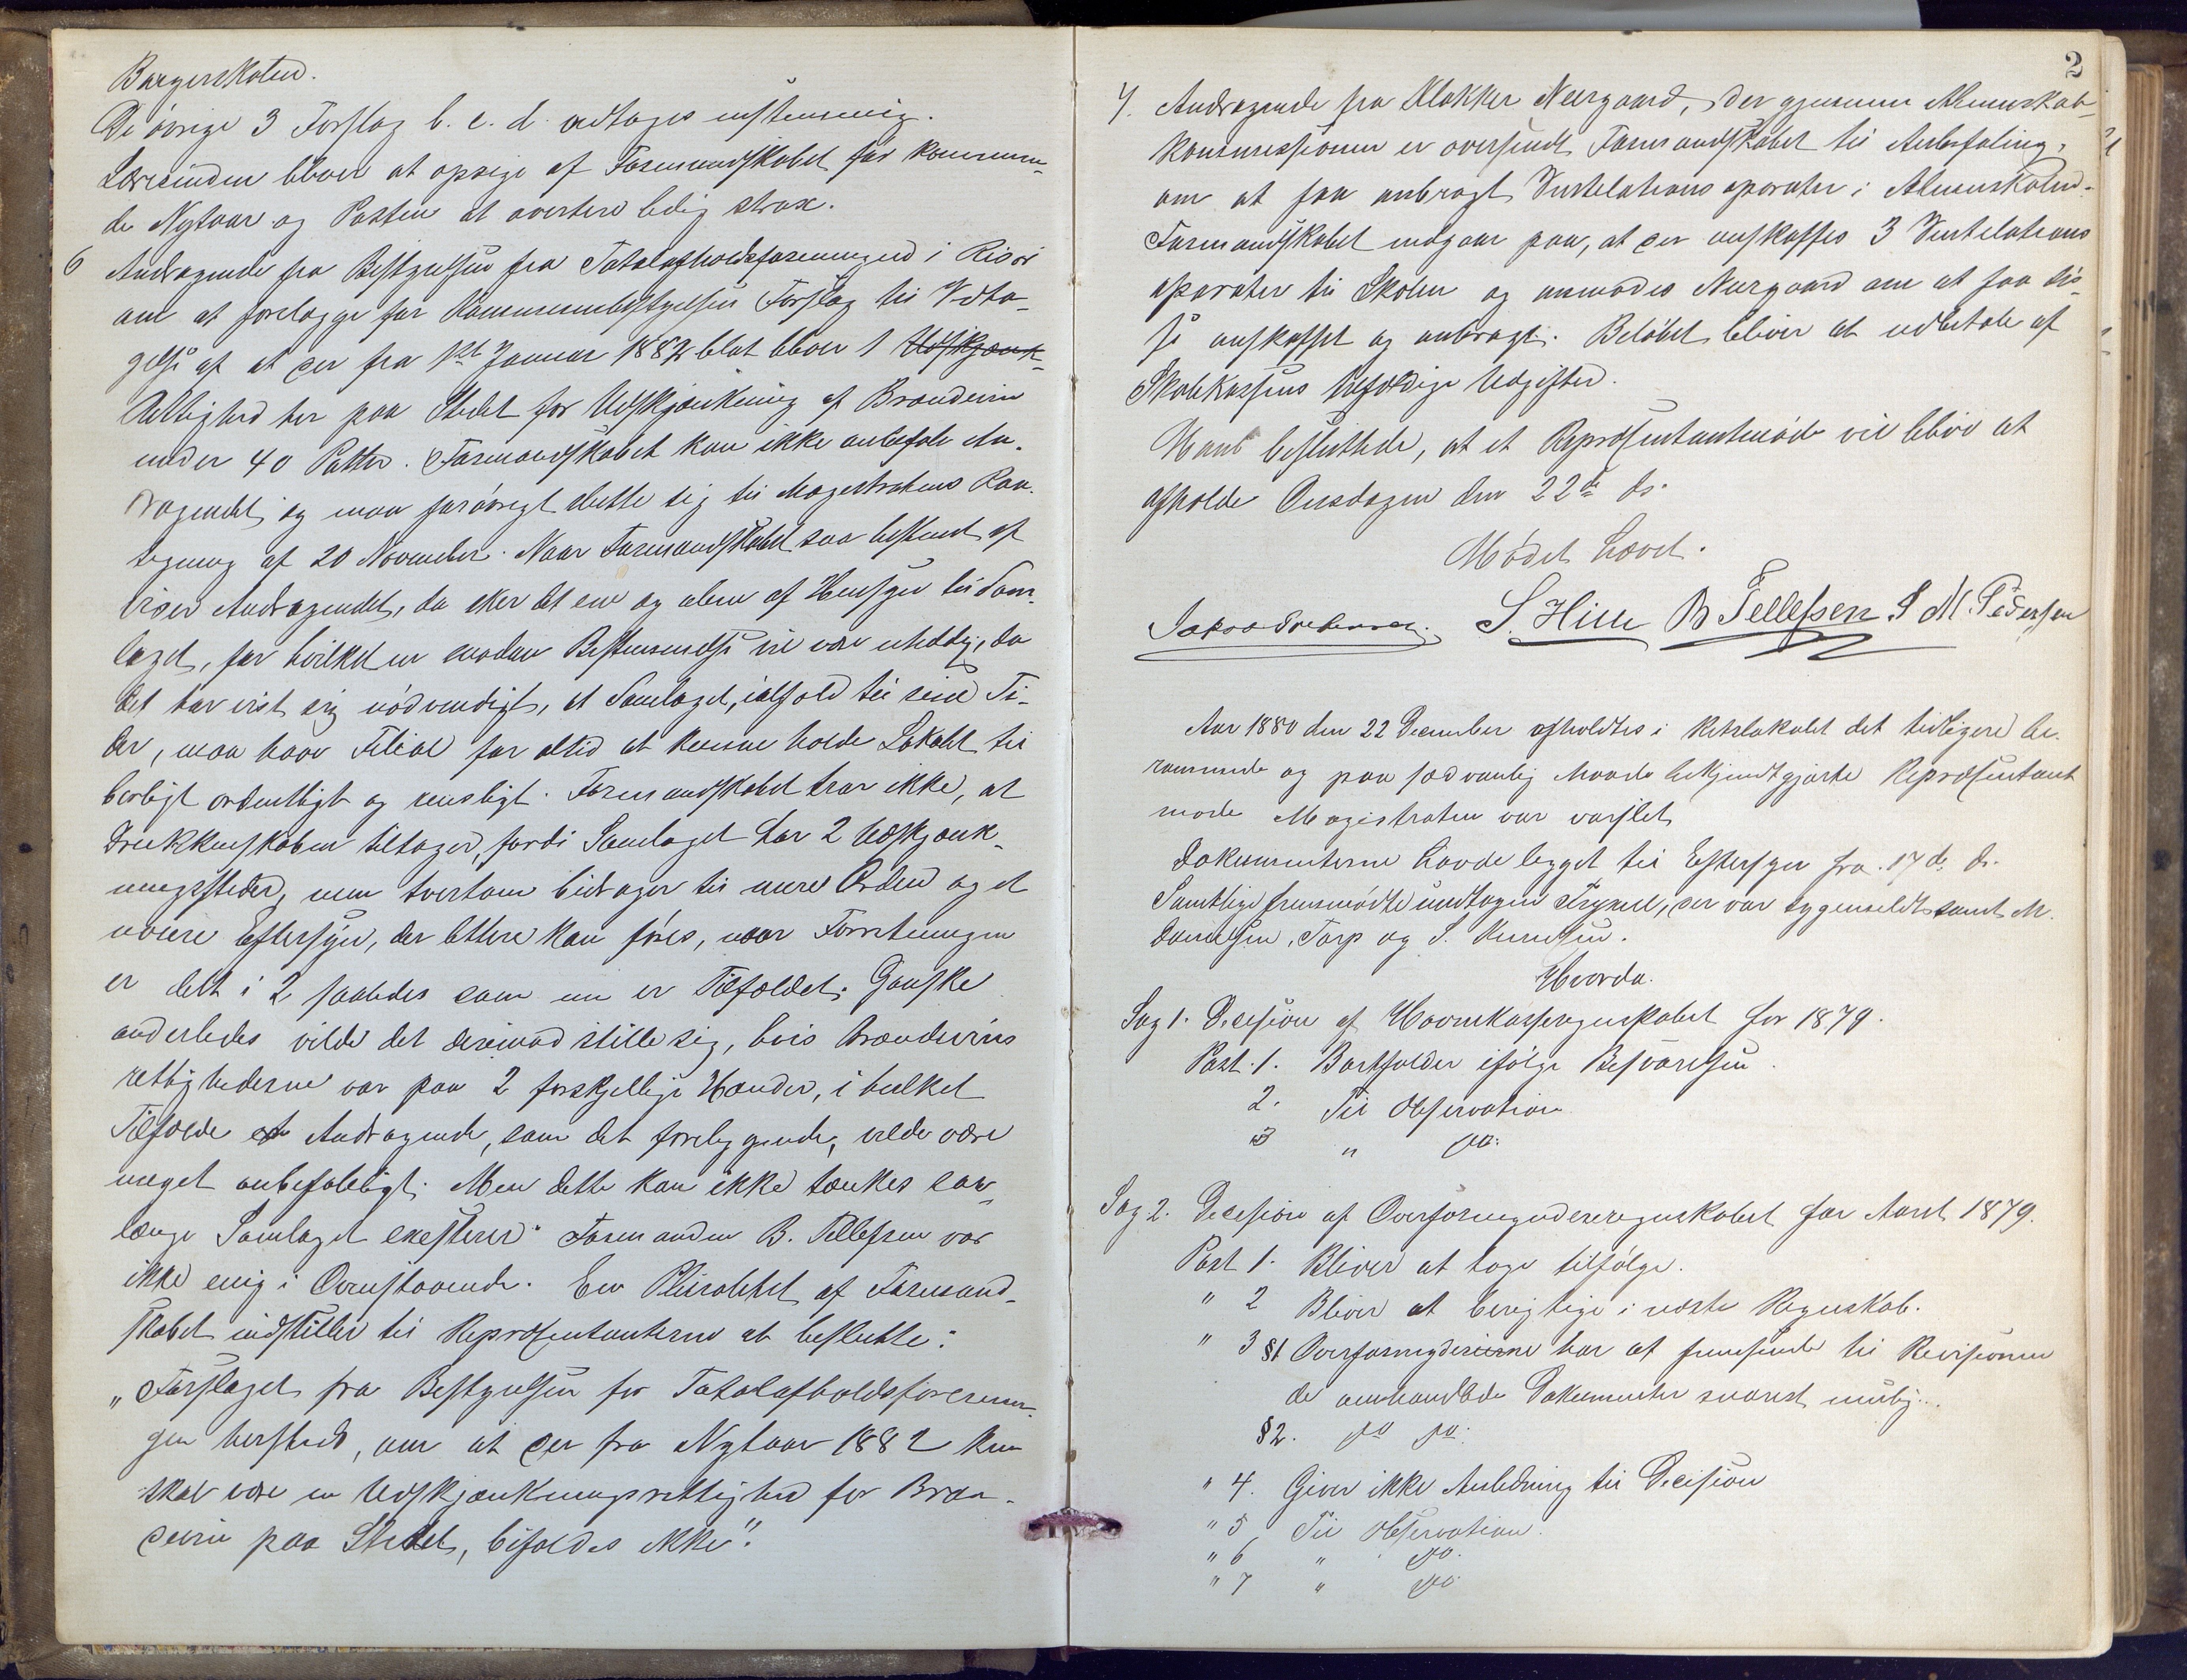 Borgerskolen.
De övrige 3 Forslag b. c. d. vedtages enstemmig.
Lærerinden bliver at opsige af Formandskabet før kommen-
de Nytaar og Posten at avertere ledig strax.
6 Andragende fra Bestyrelsen fra Totalafholdsforeningen i Risör
om at forelægge for Kommunebestyrelsen Forslag til Vedta-
gelse af at der fra 1ste Januar 1882 blot bliver 1 Udskjænk-
Rettighed her paa Stedet for Udskjænkning af Brændevin
under 40 Potter. Formandskabet kan ikke anbefale An-
dragendet og maa forövrigt slutte sig til Magistratens Paa-
tegning af 20 November. Naar Formandskabet saa bestemt af
viser Andragendet, da sker det ene og alene af Hensyn til Sam-
laget, for hvilket en saadan Bestemmelse vil være uheldig, da
det har vist sig nödvendigt, at Samlaget, ialfald til sine Ti-
der, maa have Filial for altid at kunne holde Lokalet til
börligt ordentligt og rensligt. Formandskabet tror ikke, at
Drukkenskaben tiltager, fordi Samlaget har 2 Udskjænk-
ningssteder, men tvertom bidrager til mere Orden og et
nöiere Eftersyn, der lettere kan föres, naar Forretningen
er delt i 2 saaledes som nu er Tilfældet. Ganske
anderledes vilde det derimod stille sig, hvis Brændevins
rettighederne var paa 2 forskjellige Hænder, i hvilket
Tilfælde et Andragende, som det foreliggende, vilde være
meget anbefaleligt. Men dette kan ikke tænkes saa-
længe Samlaget exesterer." Formanden B. Tellefsen var
ikke enig i Ovenstaaende. En Pluralitet af Formand-
skabet indstiller til Repræsentanterne at beslutte:
"Forslaget fra Bestyrelsen for Totalafholdsforenin-
gen hersteds, om at der fra Nytaar 1882 kun
skal være en Udskjænkningsrettighed for Bræn-
devin paa Stedet, bifaldes ikke".
2
7. Andragende fra Klokker Neergaard, der gjennem Almueskole-
kommissionen er oversendt Formandskabet til Anbefaling,
om at faa anbragt Ventelationsaparater i Almueskolen.
Formandskabet indgaar paa, at der anskaffes 3 Ventelations
aparater til Skolen og anmodes Neergaard om at faa dis-
se anskaffet og anbragt. Belöbet bliver at udbetale af
Skolekassens tilfældige Udgifter.
Man besluttede, at et Repræsentantmöde vil blive at
afholde Onsdagen den 22de ds.
Mödet hævet.
S. Hille B Tellefsen S M. Pedersen
Aar 1880 den 22 December afholdtes i Retslokalet det tidligere be-
rammede og paa sædvanlig Maade bekjendtgjorte Repræsentant
möde Magistraten var varslet
Dokumenterne havde ligget til Eftersyn fra 17 de ds.
Samtlige fremmödte undtagen, der var sygemeldt samt M.
Danielsen, Torp og S.
Hvorda.
Sag 1. Decision af Havnekasseregnskabet for 1879.
Post 1. Bortfalder ifölge Besvarelsen.
2. Til Observation
3 " do.
Sag 2. Decision af Overformynderregnskabet for Aaret 1879.
Post 1. Bliver at tage tilfölge.
" 2 Bliver at berigtige i næste Regnskab.
" 3 §1 Overformynderierne har at fremsende til Revisionen
de omhandlede Dokumenter snarest mulig.
§2. do do.
" 4. Giver ikke Anledning til Decision
" 5 Til Observation.
" 6 " do.
" 7 " do.